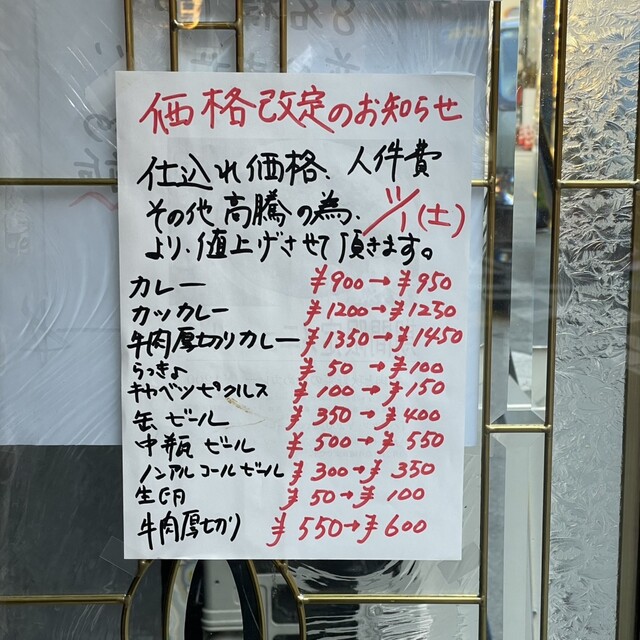 価格改定のお知らせ
仕込れ価格、人件費
その他高騰の為、11/1(土)
より、値上げさせて頂きます。
カレー ¥900→¥950
カツカレー ¥1200→¥1250
牛肉厚切りカレー ¥1350→¥1450
らっきょ ¥50→¥100
キャベツピクルス ¥100→¥150
缶ビール ¥350→¥400
中瓶ビール ¥500→¥550
ノンアルコールビール ¥300→¥350
生卵 ¥50→¥100
牛肉厚切り ¥550→¥600